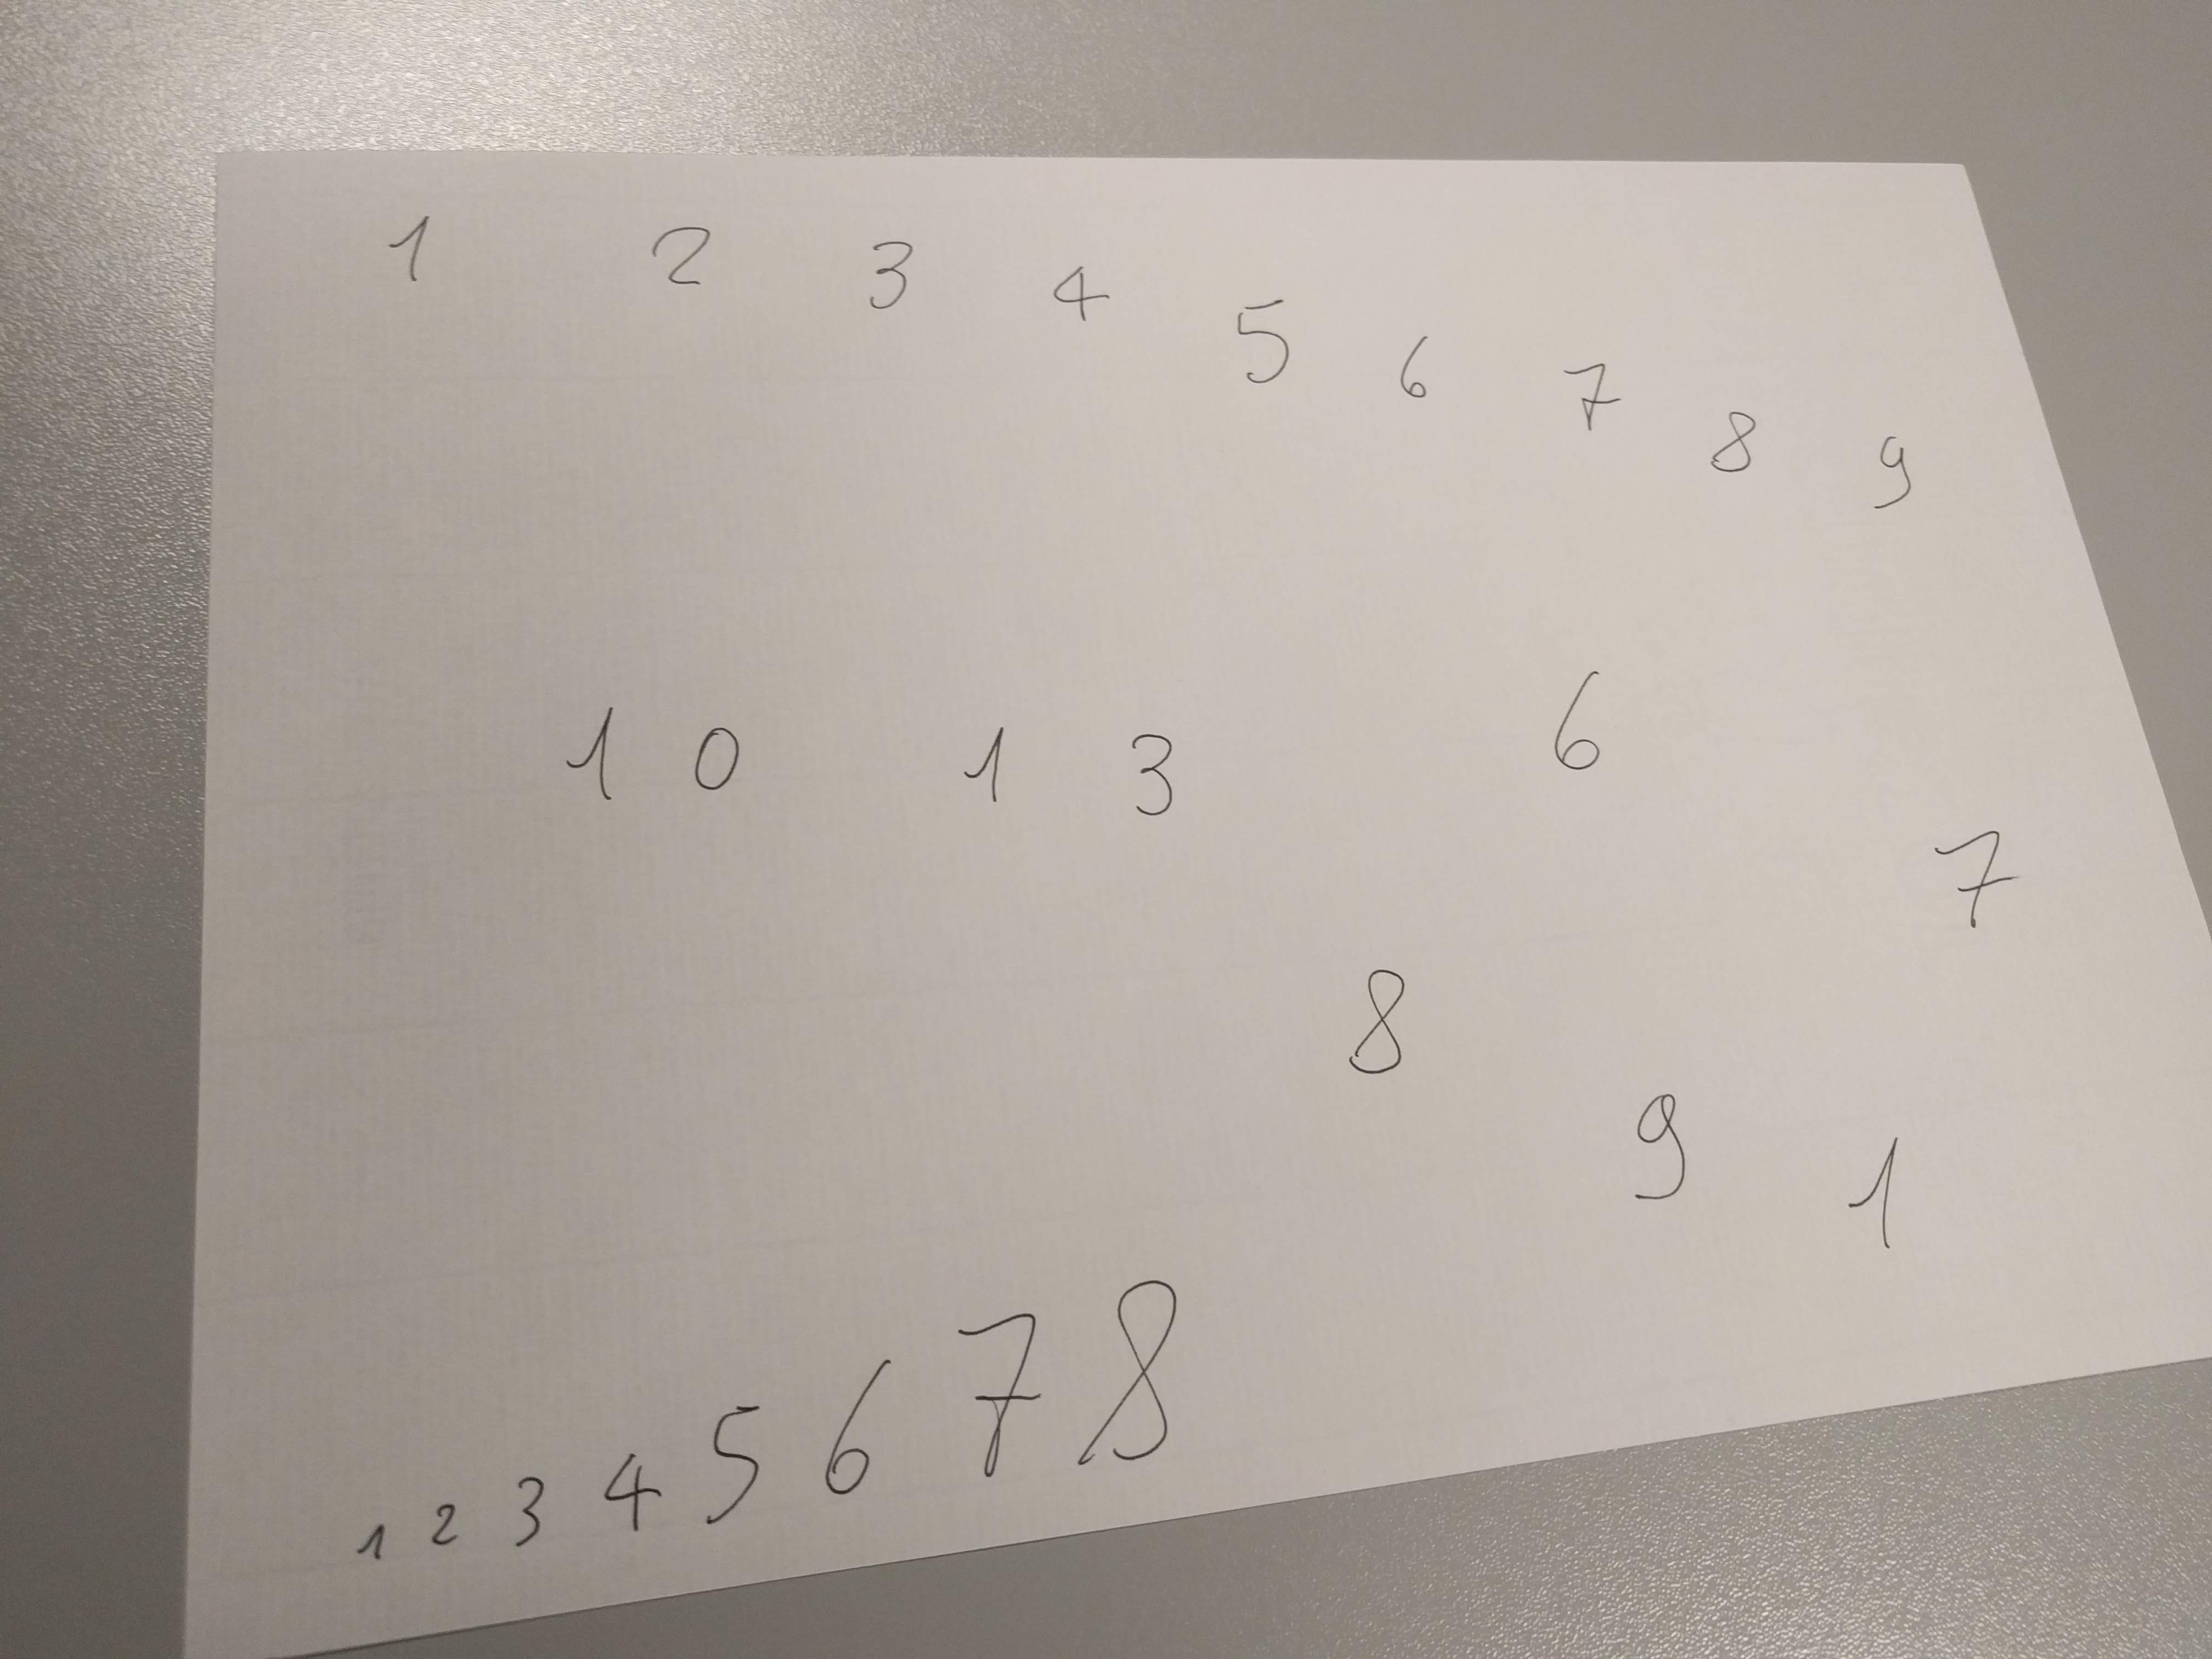 1 2 3 4 5 6 7 8 9
1 0 1 3 6
7
8
9 1
1 2 3 4 5 6 7 8